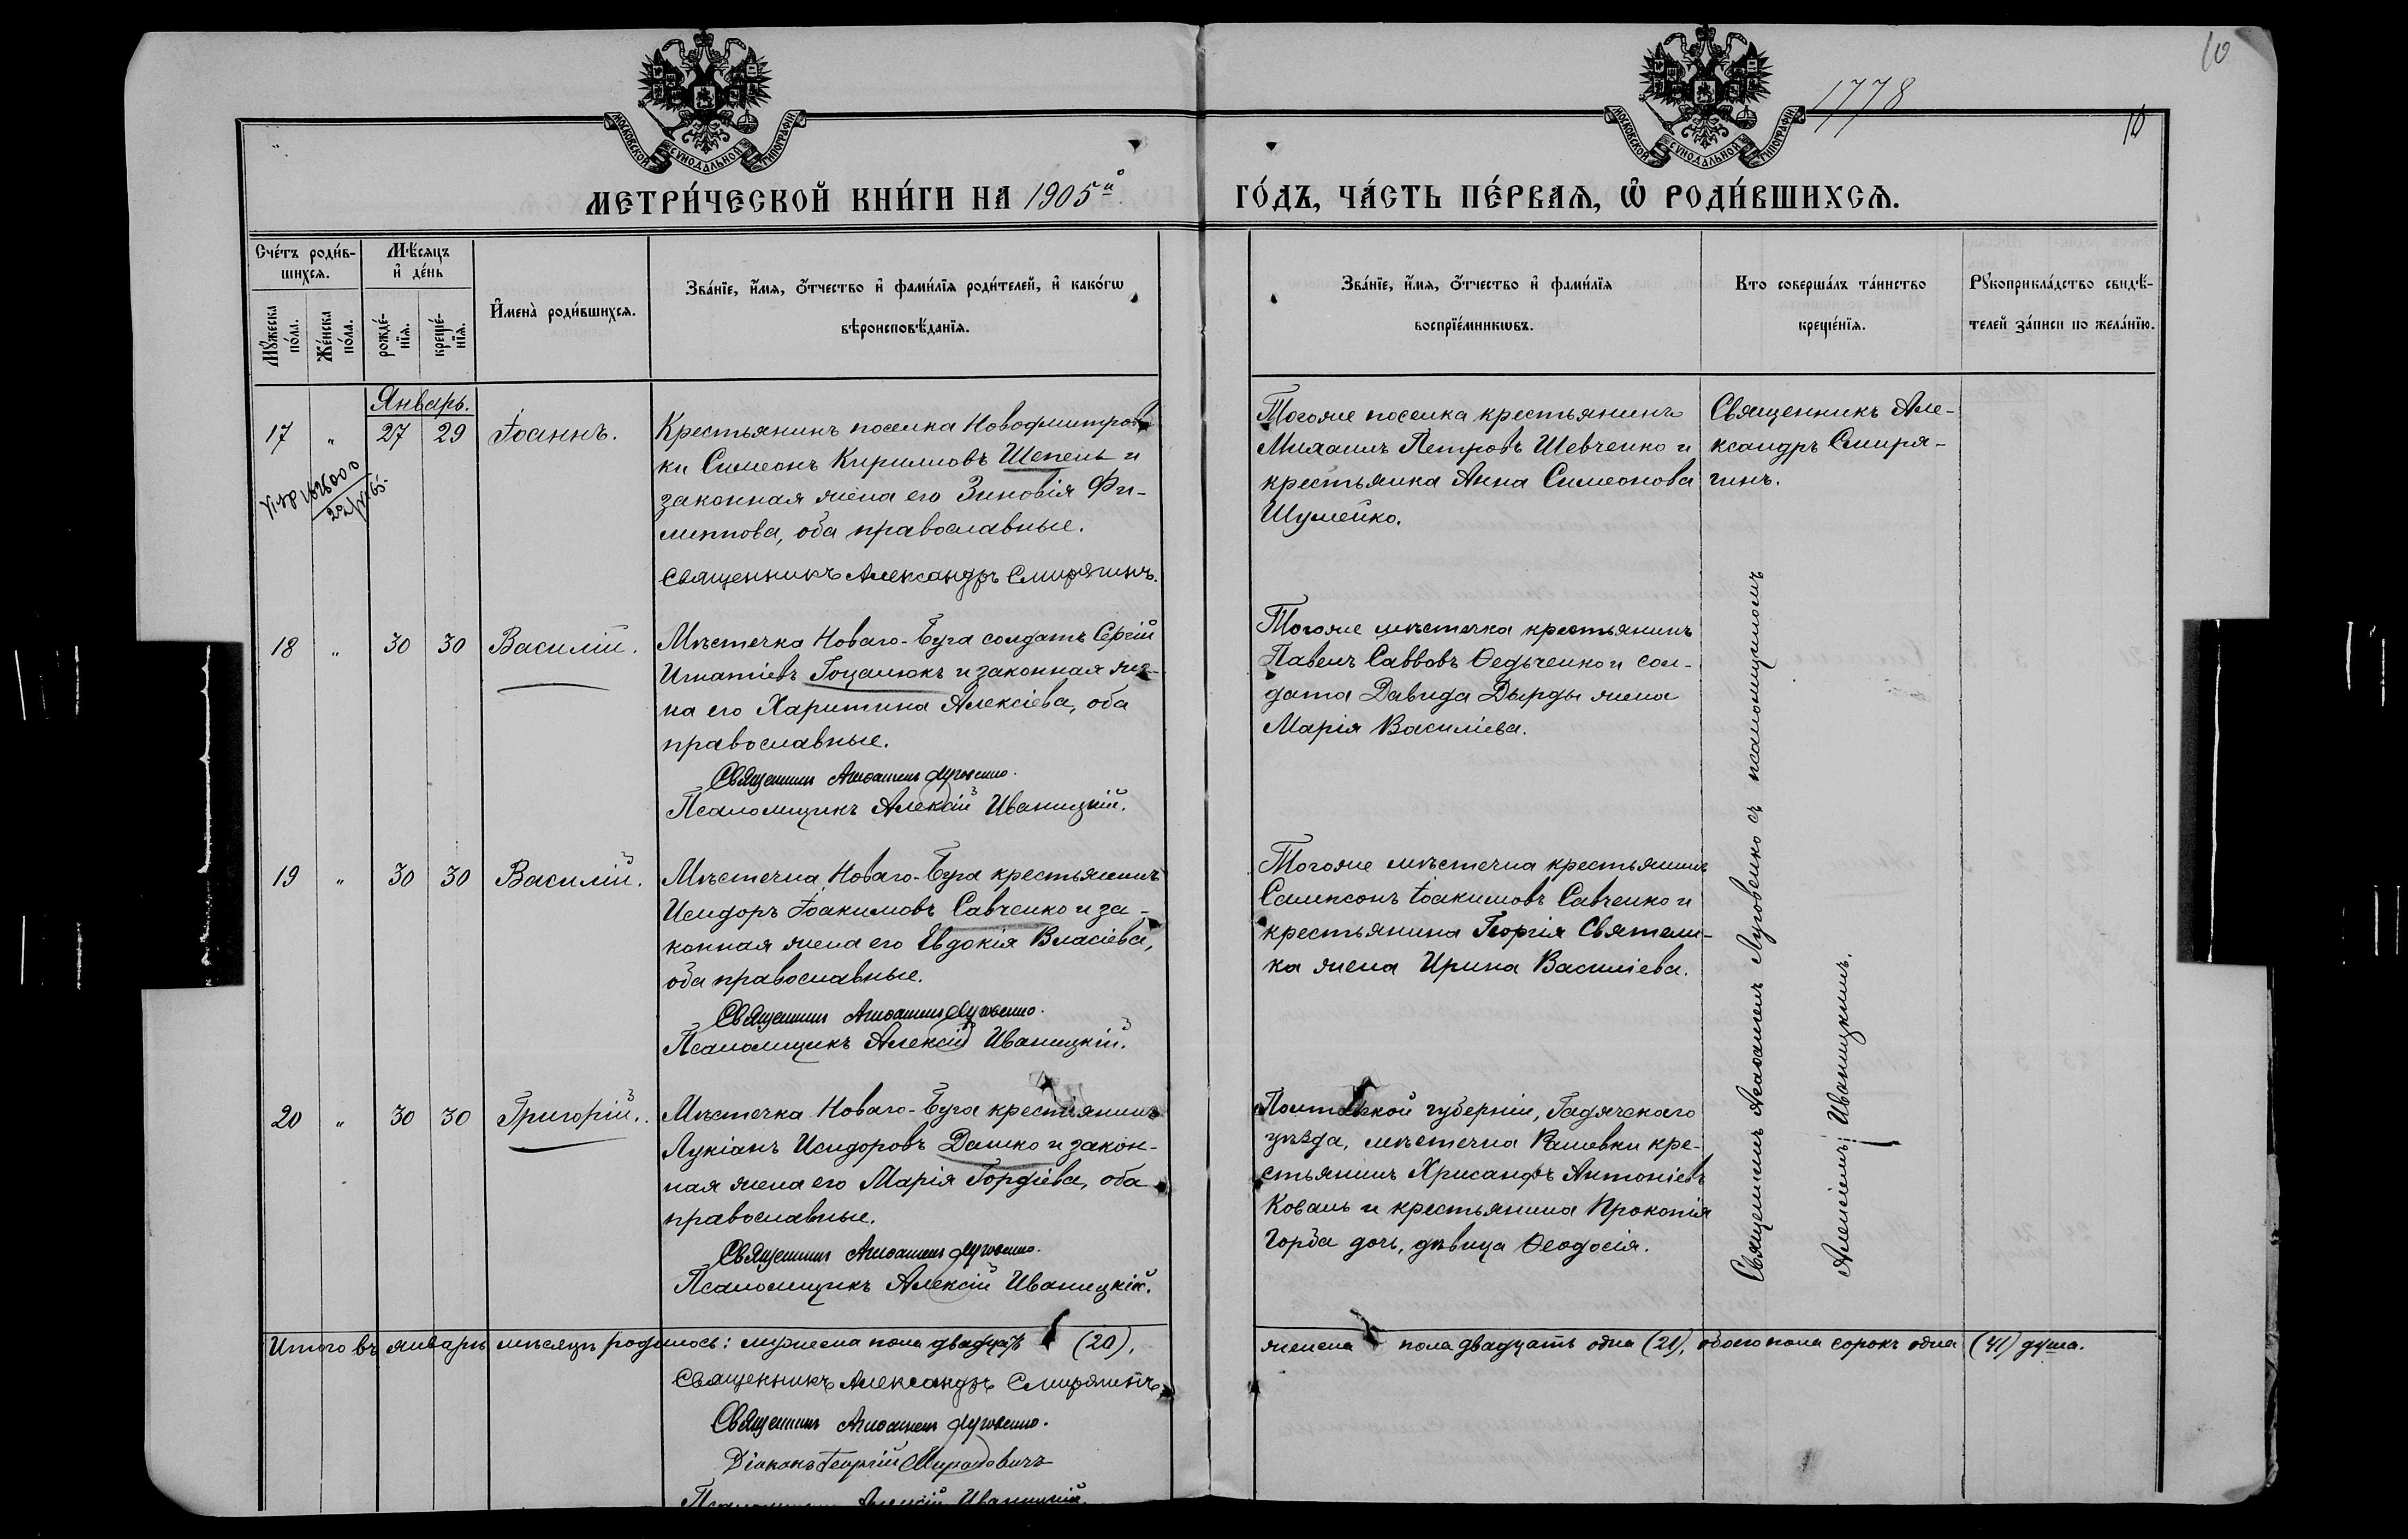 10
1778
10
МОСКОВСКОЙ СУНОДАЛЬНОЙ ТИПОГРАФІИ
МОСКОВСКОЙ СУНОДАЛЬНОЙ ТИПОГРАФІИ
МЕТРИ́ЧЕСКОЙ КНИ́ГИ НА 1905й
ГО́ДЪ, ЧА́СТЬ ПЕ́РВАѦ, Ѡ РОДИ́ВШИХСѦ.
Сче́тъ роди́в-
шихсѧ.
Мꙋ́жеска по́ла.
Же́нска по́ла.
Мѣ́сѧцъ и де́нь
рожде́-нїѧ.
креще́-нїѧ.
Имена̀ роди́вшихсѧ.
Зва́нїе, и́мѧ, ѻ́тчество и фами́лїѧ роди́телей, и како́гѡ
вѣроисповѣ́данїѧ.
Зва́нїе, и́мѧ, ѻ́тчество и фами́лїѧ
воспрїе́мникѡвъ.
Кто соверша́лъ та́инство
креще́нїѧ.
Рꙋкоприкла́дство свидѣ́-
телей за́писи по жела́нїю.
Январь.
17 " 27 29 Іоаннъ.
Крестьянинъ поселка Новодмитров-
ки Симеонъ Кирилловъ Шепель и
законная жена его Зиновія Фи-
липпова, оба православные.
Священникъ Александръ Смирягинъ.
Тогоже поселка крестьянинъ
Михаилъ Петровъ Шевченко и
крестьянка Анна Симеонова
Шумейко.
Священникъ Але-
ксандръ Смиря-
гинъ.
18 " 30 30 Василій.
Мѣстечка Новаго-Буга солдатъ Сергій
Игнатіевъ Гоцалюкъ и законная же-
на его Харитина Алексіева, оба
православные.
Священникъ Луговенко.
Псаломщикъ Алексій Иваницкій.
Тогоже мѣстечка крестьянинъ
Павелъ Саввовъ Ѳедьченко и сол-
дата Давида Дырды жена
Марія Василіева.
19 " 30 30 Василій.
Мѣстечка Новаго-Буга крестьянинъ
Исидоръ Іоакимовъ Савченко и за-
конная жена его Евдокія Власіева,
оба православные.
Священникъ Луговенко.
Псаломщикъ Алексій Иваницкій.
Тогоже мѣстечка крестьянинъ
Сампсонъ Іоакимовъ Савченко и
крестьянина Георгія Святели-
ка жена Ирина Василіева.
20 " 30 30 Григорій.
Мѣстечка Новаго-Буга крестьянинъ
Лукіанъ Исидоровъ Дашко и закон-
ная жена его Марія Гордіева, оба
православные.
Священникъ Луговенко.
Псаломщикъ Алексій Иваницкій.
Полтавской губерніи, Гадячскаго
уѣзда, мѣстечка Рашевки кре-
стьянинъ Хрисанфъ Антоніевъ
Коваль и крестьянина Прокопія
Горба дочь, дѣвица Ѳеодосія.
Священникъ Луговенко съ псаломщикомъ
Алексіемъ Иваницкимъ.
Итого въ январѣ мѣсяцѣ родилось: мужеска пола двадцать (20),
женска пола двадцать одна (21), обоего пола сорокъ одна (41) душа.
Священникъ Александръ Смирягинъ
Священникъ Луговенко.
Діаконъ Георгій
Псаломщикъ Алексій Иваницкій.